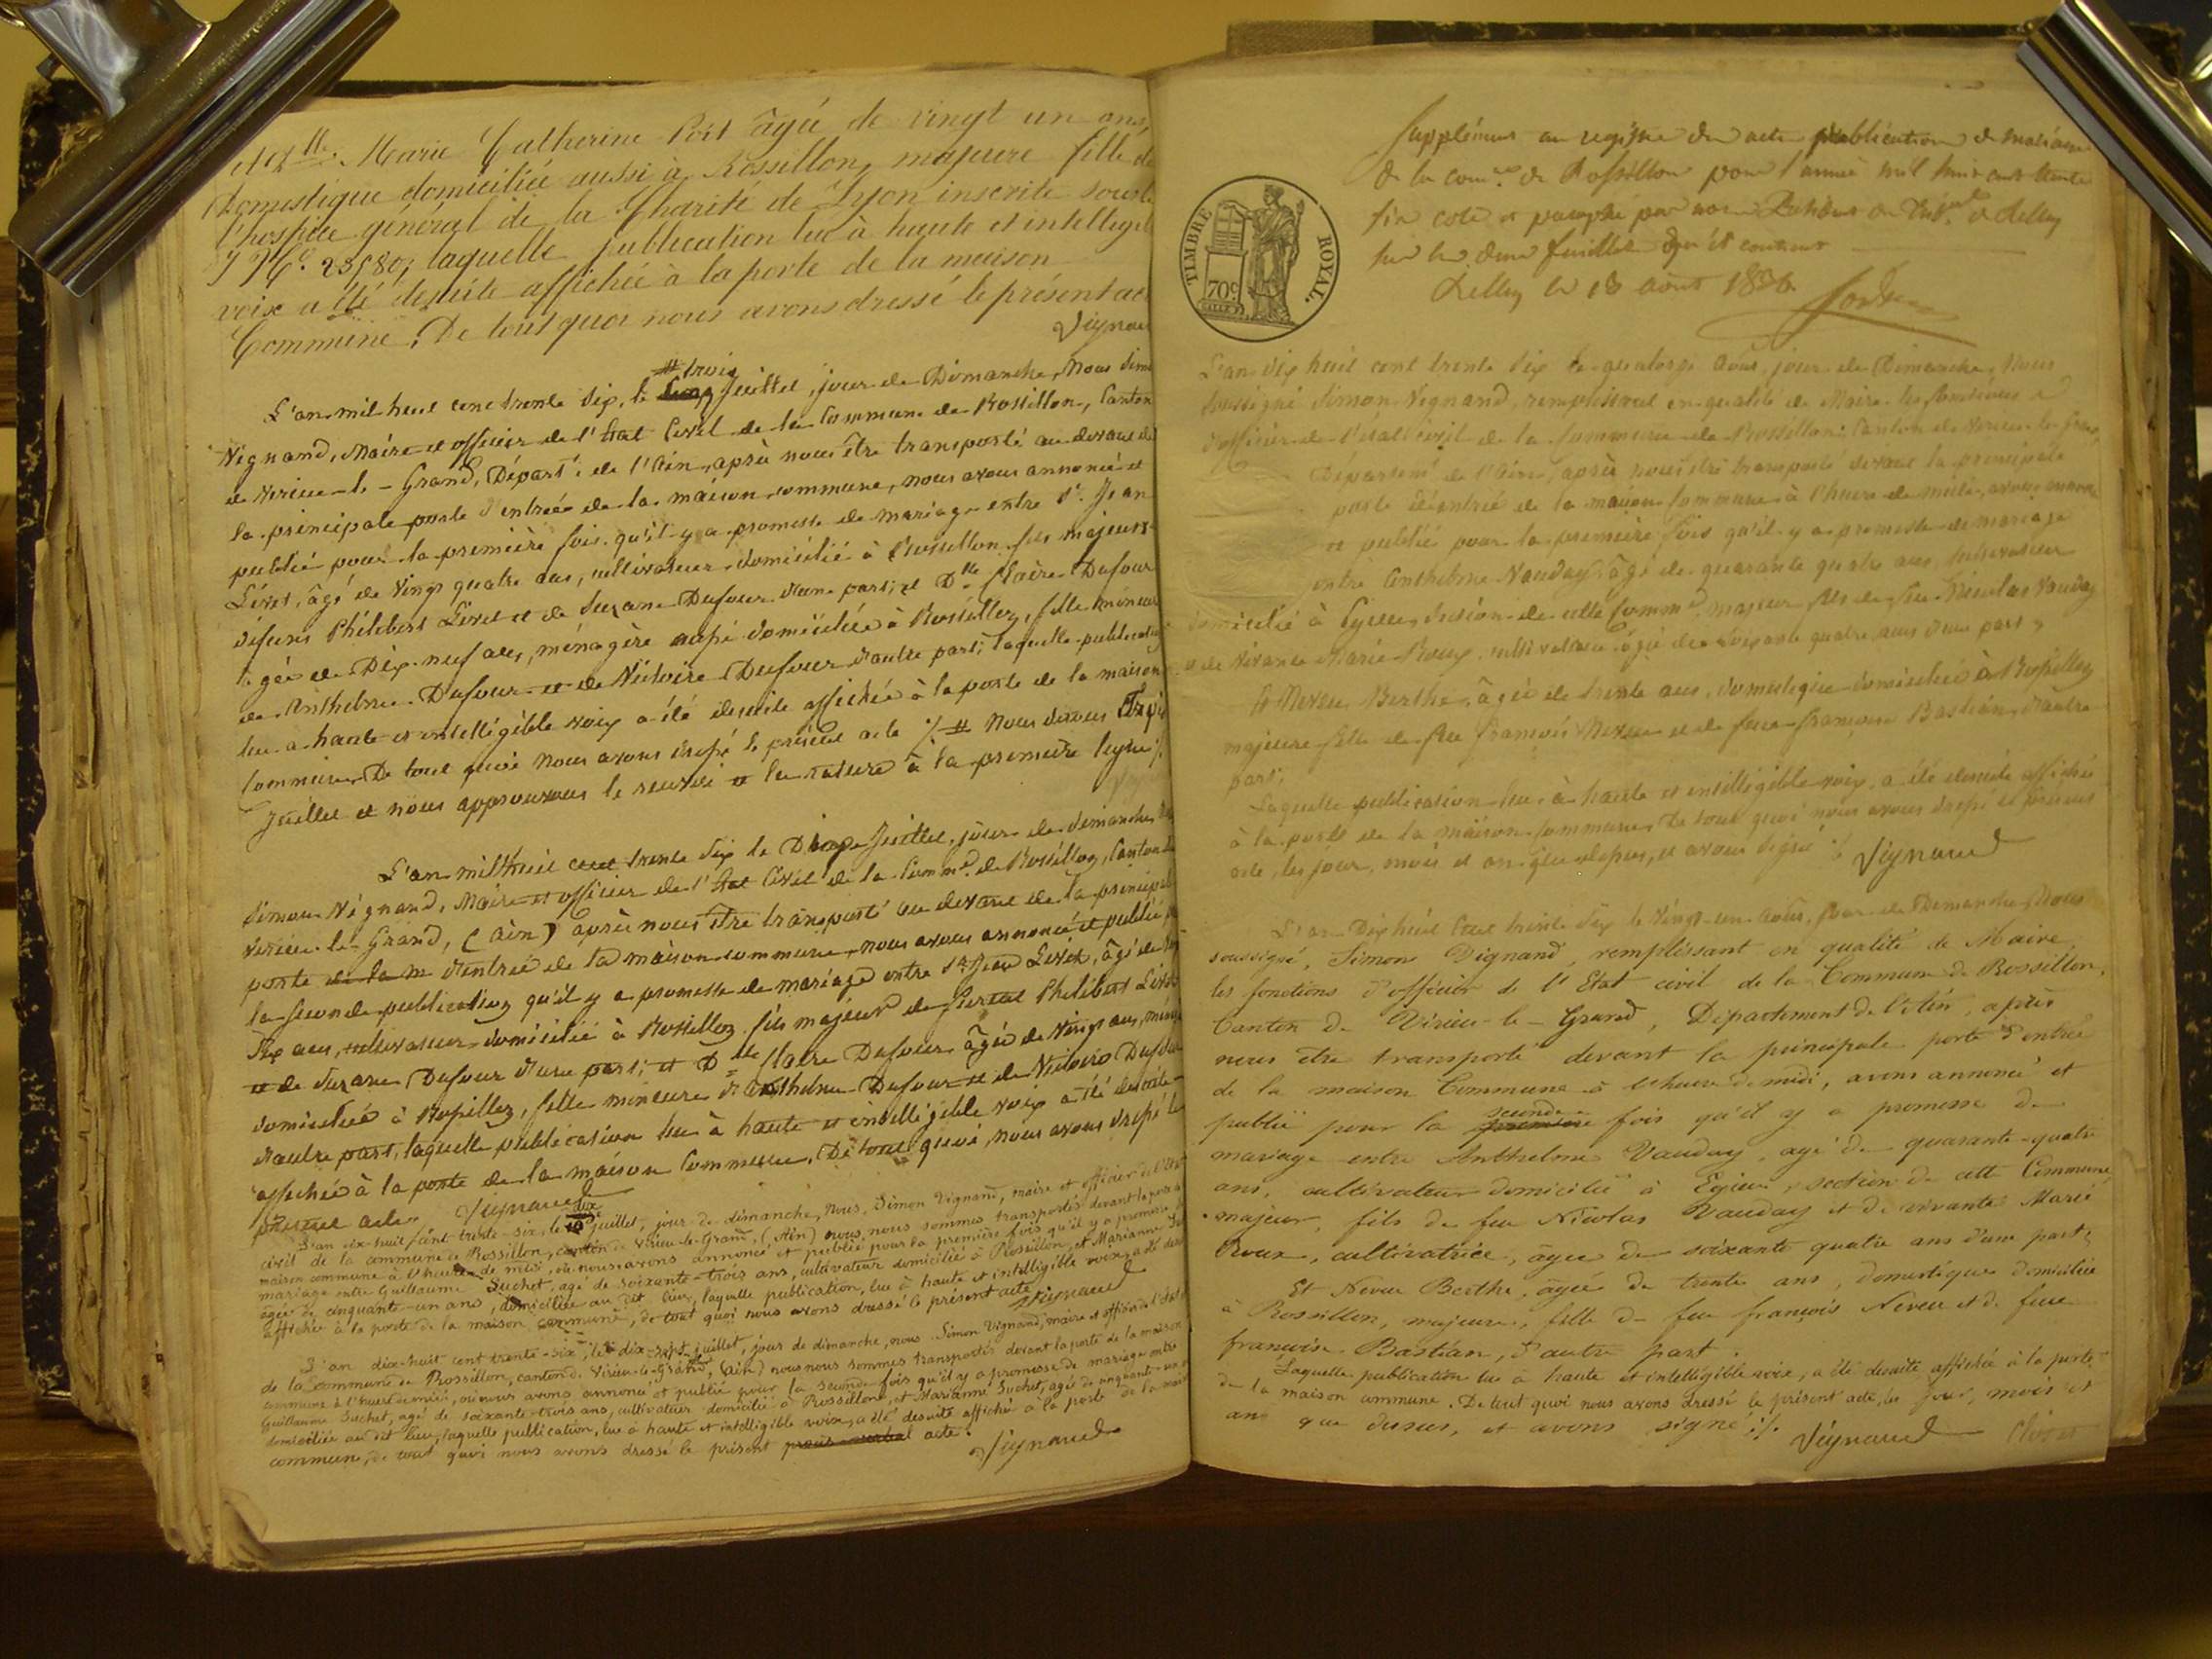 et Dlle. Marie Catherine Port âgée de vingt un ans,
domestique domiciliée aussi à Rossillon, majeure fille de
l'hospice général de la Charité de Lyon inscrite sous le
No. 23580; laquelle publication lue à haute et intelligible
voix a été desuite affichée à la porte de la maison
Commune. De tout quoi nous avons dressé le présent acte
Vignaud
# trois
L'an mil huit cent trente six, le juillet, jour de Dimanche, Nous Simon
Vignand, Maire et officier de l'Etat Civil de la Commune de Rossillon, Canton
de Virieu-le-Grand, Départt. de l'Ain, après nous être transporté au devant de
la principale porte d'entrée de la maison commune, nous avons annoncé et
publié pour la première fois qu'il y a promesse de mariage entre Sr. Jean
Livet, âgé de vingt quatre ans, cultivateur domicilié à Rossillon fils majeur
défunt Philibert Livet et de Suzane Dufour d'une part; et Dlle Claire Dufour
âgée de Dix-neuf ans, ménagère aussi domiciliée à Rossillon, fille mineure
de Anthelme Dufour et de Victoire Dufour d'autre part; laquelle publication
lue à haute et intelligible voix a été desuite affichée à la porte de la maison
Commune. De tout quoi nous avons dressé le présent acte /. # Nous disons Trois
Juillet et nous approuvons le renvoi et la rature à la première ligne /.
L'an mil huit cent trente six le Dix Juillet, jour de dimanche,
Simon Vignand, Maire et officier de l'Etat Civil de la Comme. de Rossillon, Canton de
Virieu-le-Grand, (Ain) après nous être transporté au devant de la principale
porte de la m d'entrée de la maison commune, nous avons annoncé et publié
la seconde publication qu'il y a promesse de mariage entre Sr. Jean Livet, âgé de
six ans, cultivateur domicilié à Rossillon fils majeur de Philibert Livet
et de Suzane Dufour d'une part; et Dlle Claire Dufour âgée de vingt ans,
domiciliée à Rossillon, fille mineure d'Anthelme Dufour et de Victoire Dufour
d'autre part, laquelle publication lue à haute et intelligible voix a été desuite
affichée à la porte de la maison Commune. De tout quoi, nous avons dressé le
présent acte. Vignaud
dix
L'an dix-huit cent trente-six, le juillet, jour de dimanche, nous Simon Vignand, maire et officier de l'Etat
civil de la commune de Rossillon, canton de Virieu-le-Grand, (Ain) nous nous sommes transportés devant la porte de la
maison commune à l'heure de midi, où nous avons annoncé et publié pour la première fois qu'il y a promesse de
mariage entre Guillaume Suchet, agé de soixante-trois ans, cultivateur domicilié à Rossillon, et Marianne
âgée de cinquante-un ans, domiciliée au dit lieu, laquelle publication, lue à haute et intelligible voix, a été desuite
affichée à la porte de la maison commune, de tout quoi nous avons dressé le présent acte
Vignaud
L'an dix-huit cent trente-six, le dix-sept juillet, jour de dimanche, nous Simon Vignand, maire et officier de l'Etat
de la Commune de Rossillon, canton de Virieu-le-Grand, (Ain) nous nous sommes transportés devant la porte de la maison
commune à l'heure de midi, où nous avons annoncé et publié pour la seconde fois qu'il y a promesse de mariage entre
Guillaume Suchet, agé de soixante-trois ans, cultivateur domicilié à Rossillon, et Marianne Suchet, agée de cinquante-un
domiciliée au dit lieu, laquelle publication, lue à haute et intelligible voix, a été desuite affichée à la porte de la maison
commune, de tout quoi nous avons dressé le présent procès-verbal acte.
Vignaud
Supplément au registre des actes publication de mariage
de la come. de Rossillon pour l'année mil huit cent trente
six coté et paraphé par nous Président du Tribunal de Belley
sur les deux feuillets qu'il contient
Belley le 13 août 1836
TIMBRE ROYAL.
70c
L'an dix huit cent trente six le quatorze août, jour de Dimanche, Nous
soussigné Simon Vignand, remplissant en qualité de Maire les fonctions
d'officier de l'état civil de la Commune de Rossillon, Canton de Virieu-le-Grand
Départemt. de l'Ain, après nous être transporté devant la principale
porte d'entrée de la maison Commune à l'heure de midi, avons annoncé
et publié pour la première fois qu'il y a promesse de mariage
entre Anthelme Vauday, âgé de quarante quatre ans, cultivateur
domicilié à Egieu, section de cette Comme. majeur fils de feu Nicolas Vauday
et de vivante Marie Roux, cultivatrice âgée de soixante quatre ans d'une part;
Et Neveu Berthe, âgée de trente ans, domestique domiciliée à Rossillon
majeure fille de feu François Neveu et de feue françoise Bastian, d'autre
part;
Laquelle publication lue à haute et intelligible voix, a été desuite affichée
à la porte de la maison Commune. De tout quoi nous avons dressé le présent
acte, les jour, mois et an que dessus, et avons signé /. Vignaud
L'an Dix huit Cent trente six le vingt-un août, jour de Dimanche Nous
soussigné, Simon Vignand, remplissant en qualité de Maire
les fonctions d'officier de l'Etat civil de la Commune de Rossillon,
Canton de Virieu-le-Grand, Département de l'Ain, après
nous être transporté devant la principale porte d'entrée
de la maison Commune à l'heure de midi, avons annoncé et
publié pour la première seconde fois qu'il y a promesse de
mariage entre Anthelme Vauday, agé de quarante-quatre
ans, cultivateur domicilié à Egieu, section de cette Commune,
majeur, fils de feu Nicolas Vauday et de vivante Marie
Roux, cultivatrice, âgée de soixante quatre ans d'une part;
Et Neveu Berthe, âgée de trente ans, domestique domiciliée
à Rossillon, majeure, fille de feu françois Neveu et de feue
françoise Bastian, d'autre part.
Laquelle publication lue à haute et intelligible voix, a été desuite affichée à la porte
de la maison commune. De tout quoi nous avons dressé le présent acte, les jour, mois et
an que dessus, et avons signé /. Vignaud